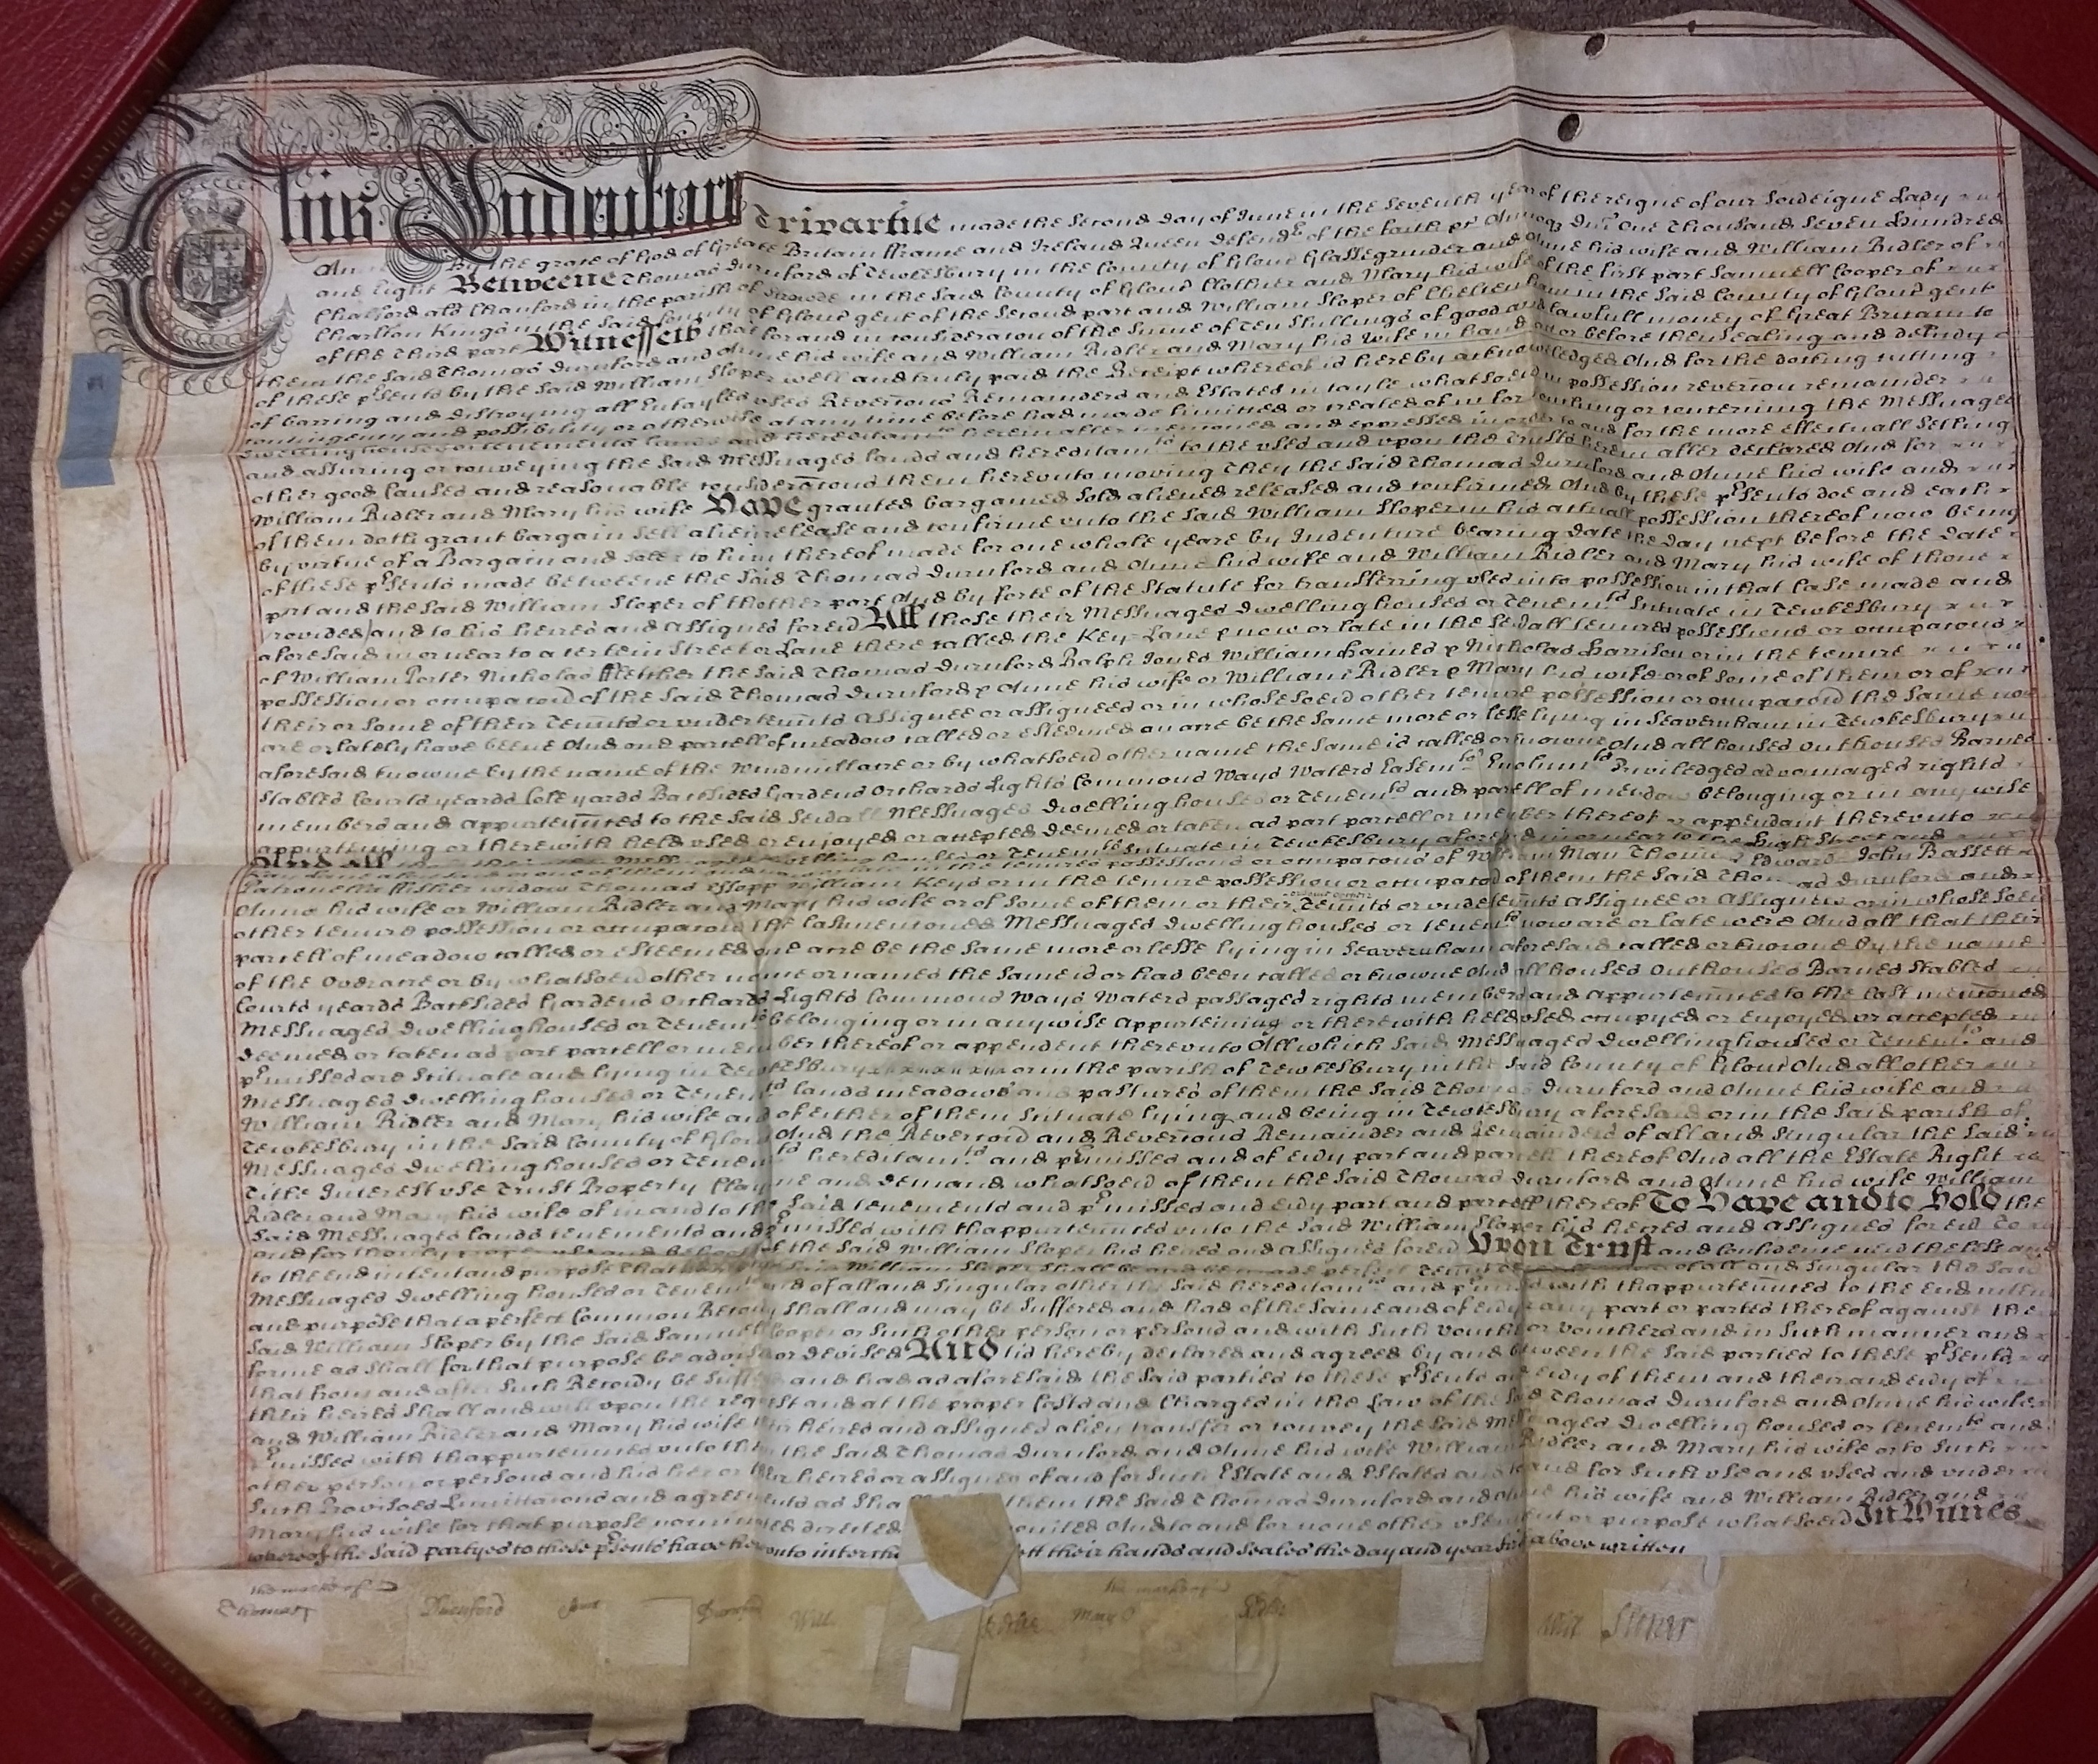 This Indenture Tripartite made the Second day of June in the Seventh year of the reigne of our Soveigne Lady
By the grace of God of Greate Britain ffrance and Ireland Queen defend:r of the faith &c Annoq Dni One Thousand Seven Hundred
and Eight Betweene Thomas Durnford of Tewkesbury in the County of Glouc Glassegrinder and Anne his wife and William Ridler of
Chalford als Chauford in the parish of in the Said County of Glouc Clothier and Mary his wife of the first part Samuell Cooper of
Charlton Kings in the Said County of Glouc gent of the Second part and William Sloper of Cheltenham in the Said County of Glouc gent
of the Third part Witnesseth that for and in consideracon of the Sume of Ten Shillings of good and lawfull money of Great Britain to
them the Said Thomas Durnford and Anne his wife and William Ridler and Mary his wife in hand att or before thensealing and delivy
of these p:rsents by the Said William Sloper well and truly paid the Receipt whereof is hereby acknowledged And for the docking cutting
of barring and distroying all Entayles vses Revercons Remainders and Estates in tayle whatsoevr in possession revercon remainder
contingency and possibility or otherwise at any time before had made limitted or created of in or touching or concerning the Messuages
dwellinghouses or tenements lands and hereditam:ts herein after menconed and expressed in order to and for the more effectuall Setling
and assuring or conveying the Said Messuages lands and hereditam:ts to the vses and vpon the Trusts herein after declared And for
other good Causes and reasonable consideracons them herevnto moving They the Said Thomas Durnford and Anne his wife and
William Ridler and Mary his wife Have granted bargained Sold aliened released and confirmed And by these p:rsents doe and each
of them doth grant bargain Sell alien release and confirme vnto the Said William Sloper in his actuall possession thereof now being
by virtue of a Bargain and Sale to him thereof made for one whole yeare by Indenture bearing date the day next before the date
of these p:rsents made betweene the Said Thomas Durnford and Anne his wife and William Ridler and Mary his wife of thone
part and the Said William Sloper of thother part And by force of the Statute for transferring vses into possession in that Case made and
provided) and to his heires and assignes forevr All those their Messuages dwellinghouses or Tenem:ts Scituate in Tewkesbury
aforesaid in or near to a certein Street or Lane there called the Key-Lane & now or late in the Sevall tenures possessions or occupacons
of William Porter Nicholas ffletcher the Said Thomas Durnford Ralph Jones William Haines & Nicholas Harrison or in the tenure
possession or occupacon of the Said Thomas Durnford & Anne his wife or William Ridler & Mary his wife or of Some of them or of
their or Some of their Tenñts or vndertenñts assignee or assignees or in whose Soevr other tenure possession or occupacon the Same now
are or lately have beene And one parcell of meadow called or esteemed an acre be the Same more or lesse lying in Seavernham in Tewkesbury
aforesaid knowne by the name of the Windmill acre or by whatsoevr other name the Same is called or knowne And all houses outhouses Barnes
Stables Courts yeards Cole yards Backsides Gardens Orchards Lights Commons Ways Waters Easem:ts Priviledges advantages rights
members and appurtenñces to the Said Sevall Messuages dwelling houses or Tenem:ts and parcell of meadow belonging or in any wise
appurteyning or therewith held vsed or enjoyed or accepted deemed or taken as part parcell or member thereof or appendant therevnto
And All Messuages dwelling houses or Tenem:ts Scituate in Tewkesbury aforesd in or near to the High Street and
in the tenures possessions or occupacons of William Man Thomas Edwards John Bassett
ffisher widow Thomas William Keys or in the tenure possession or occupacon of them the Said Thomas Durnford and
Anne his wife or William Ridler and Mary his wife or of Some of them or their Tenñts or vndertenñts assignee or Assignees or in whose Soevr
other tenure possession or occupacon the last menconed Messuages dwelling houses or tenem:ts now are or late were And all that their
parcell of meadow called or esteemed one acre be the Same more or lesse lying in Seavernham aforesaid called or knowne by the name
of the acre or by whatsoevr other name or names the Same is or has been called or knowne And all houses Outhouses Barnes Stables
Courts yeards Backsides Gardens Orchards Lights Commons Ways Waters passages rights members and appurtenñces to the last menconed
Messuages dwelling houses or Tenem:ts belonging or in any wise appurteining or therewith held vsed occupyed or enjoyed or accepted
deemed or taken as part parcell or member thereof or appendent therevnto All which Said Messuages dwelling houses or Tenem:ts and
p:rmisses are Scituate and lying in Tewkesbury or in the parish of Tewkesbury in the Said County of Glouc And all other
Messuages dwelling houses or Tenem:ts lands meadows and pastures of them the Said Thomas Durnford and Anne his wife and
William Ridler and Mary his wife and of either of them Scituate lying and being in Tewkesbury aforesaid or in the Said parish of
Tewkesbury in the Said County of Glouc And the Revercon and Revercons Remainder and Remainders of all and Singular the Said
Messuages dwelling houses or Tenem:ts hereditam:ts and p:rmisses and of evy part and parcell thereof And all the Estate Right
Title Interest vse Trust Property Clayme and demand whatsoevr of them the Said Thomas Durnford and Anne his wife William
Ridler and Mary his wife of in and to the Said tenements and p:rmisses and evy part and parcell thereof To Have and to Hold the
Said Messuages lands tenements and p:rmisses with thappurtenñces vnto the Said William Sloper his heires and assignes forevr To
and for thonly proper vse and behoof of the Said William Sloper his heires and assignes forevr Vpon Trust and Confidence
to the end intent and purpose that the Said William Sloper Shall be and be made perfect Tenñt of all and Singular the Said
Messuages dwelling houses or Tenem:ts and of all and Singular other the Said hereditam:ts and p:rmisses with thappurtenñces to the End intent
and purpose that a perfect Common Recovy Shall and may be Suffered and had of the Same and of evy or any part or parts thereof against the
Said William Sloper by the Said Samuell Cooper or Such other person or persons and with Such voucher or vouchers and in Such manner and
forme as Shall for that purpose be advised or devised And it is hereby declared and agreed by and between the Said parties to these p:rsents
that from and after Such Recovy be Suffered and had as aforesaid the Said parties to these p:rsents and evy of them and their and evy of
their heires Shall and will vpon the request and at the proper Costs and Charges in the Law of the Said Thomas Durnford and Anne his wife
and William Ridler and Mary his wife their heires and assignes alien transfer or convey the Said Messuages dwelling houses or tenem:ts and
p:rmisses with thappurtenñces vnto them the Said Thomas Durnford and Anne his wife William Ridler and Mary his wife or to Such
other person or persons and his her or their heires or assignes of and for Such Estate and Estates and to and for Such vse and vses and vnder
Such Provisoes Limittacons and agreements as Sha them the Said Thomas Durnford and Anne his wife and William Ridler and
Mary his wife for that purpose nominated directed And to and for none other vse intent or purpose whatsoevr In Witnes
whereof the Said partyes to these p:rsents have herevnto sett their hands and Seales the day and year first above written
the marke of the marke of
Thomas Durnford Anne Durnford Will Ridler Mary Ridler Will Sloper